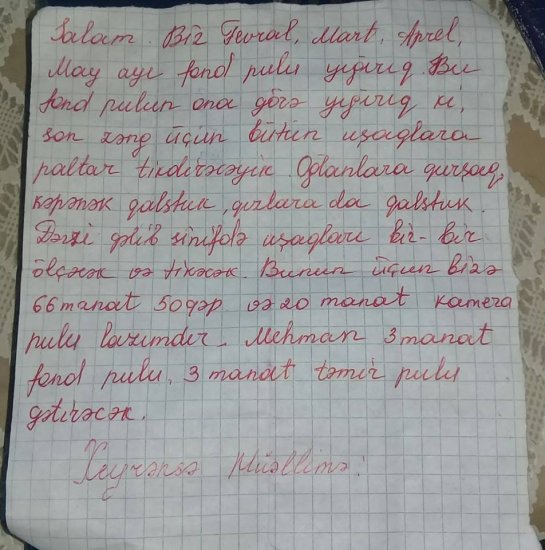 Salam. Biz Fevral, Mart, Aprel,
May ayı fond pulu yığırıq. Bu
fond pulun ona görə yığırıq ki,
son zəng üçün bütün uşaqlara
paltar tikdirəcəyik. Oğlanlara qurşaq,
kəpənək qalstuk, qızlara da qalstuk.
Dərzi gəlib sinifdə uşaqları bir-bir
ölçəcək və tikəcək. Bunun üçün bizə
66 manat 50 qəp. və 20 manat kamera
pulu lazımdır. Mehman 3 manat
fond pulu, 3 manat təmir pulu
gətirəcək.
Müəllimə!